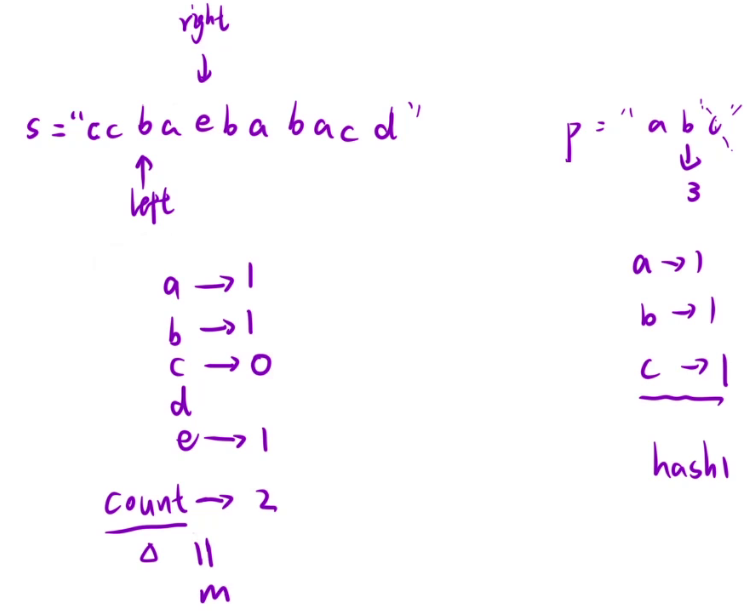 right
↓
s="ccbaebabacd"
p="abc"
↑
left
↓
3
a→1
b→1
c→0
d
e→1
count→2
Δ ||
m
a→1
b→1
c→1
hash1